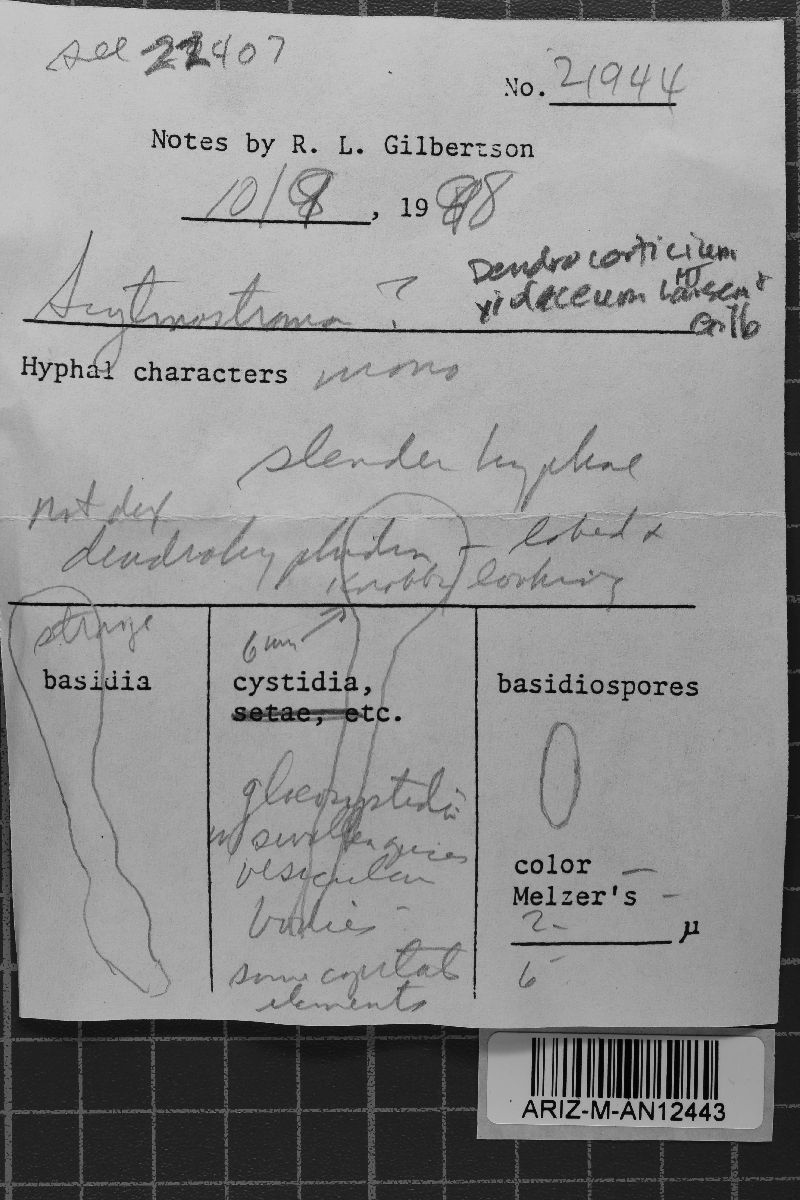 see 22407
No. 21944
Notes by R. L. Gilbertson
10/8, 1988
Scytinostroma ?
Dendrocorticium
violaceum HJ Larsen &
Gilb
Hyphal characters mono
slender hyphae
not dex
dendrohyphidia - lobed &
knobby looking
strange
6 um
basidia
cystidia,
setae, etc.
gloeocystidia
swollen
vesicular
bodies -
some capitate
elements
basidiospores
color —
Melzer's -
2- µ
6-
ARIZ-M-AN12443